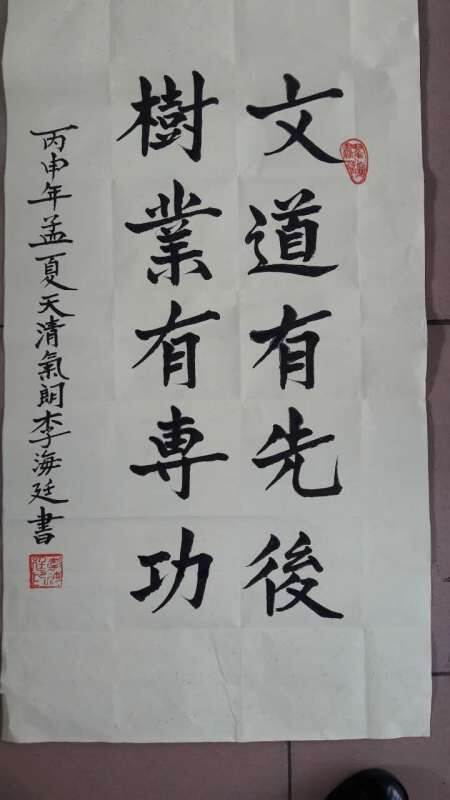 文道有先後
樹業有専功
丙申年孟夏天清氣朗李海廷書